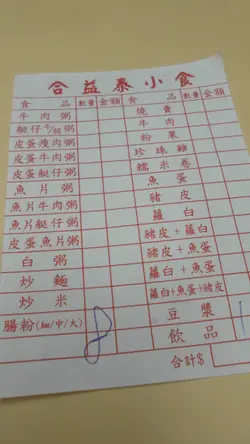 合益泰小食
食品 數量 金額 食品 數量 金額
牛肉粥 燒賣
艇仔粥 牛肉
皮蛋瘦肉粥 粉果
皮蛋牛肉粥 珍珠雞
皮蛋艇仔粥 糯米卷
魚片粥 魚蛋
魚片牛肉粥 豬皮
魚片艇仔粥 蘿白
皮蛋魚片粥 豬皮+蘿白
白粥 蘿白+魚蛋
炒麵 豬皮+魚蛋
炒米 蘿白+魚蛋+豬皮
腸粉(細/中/大) 8 豆漿 1
飲品
合計$